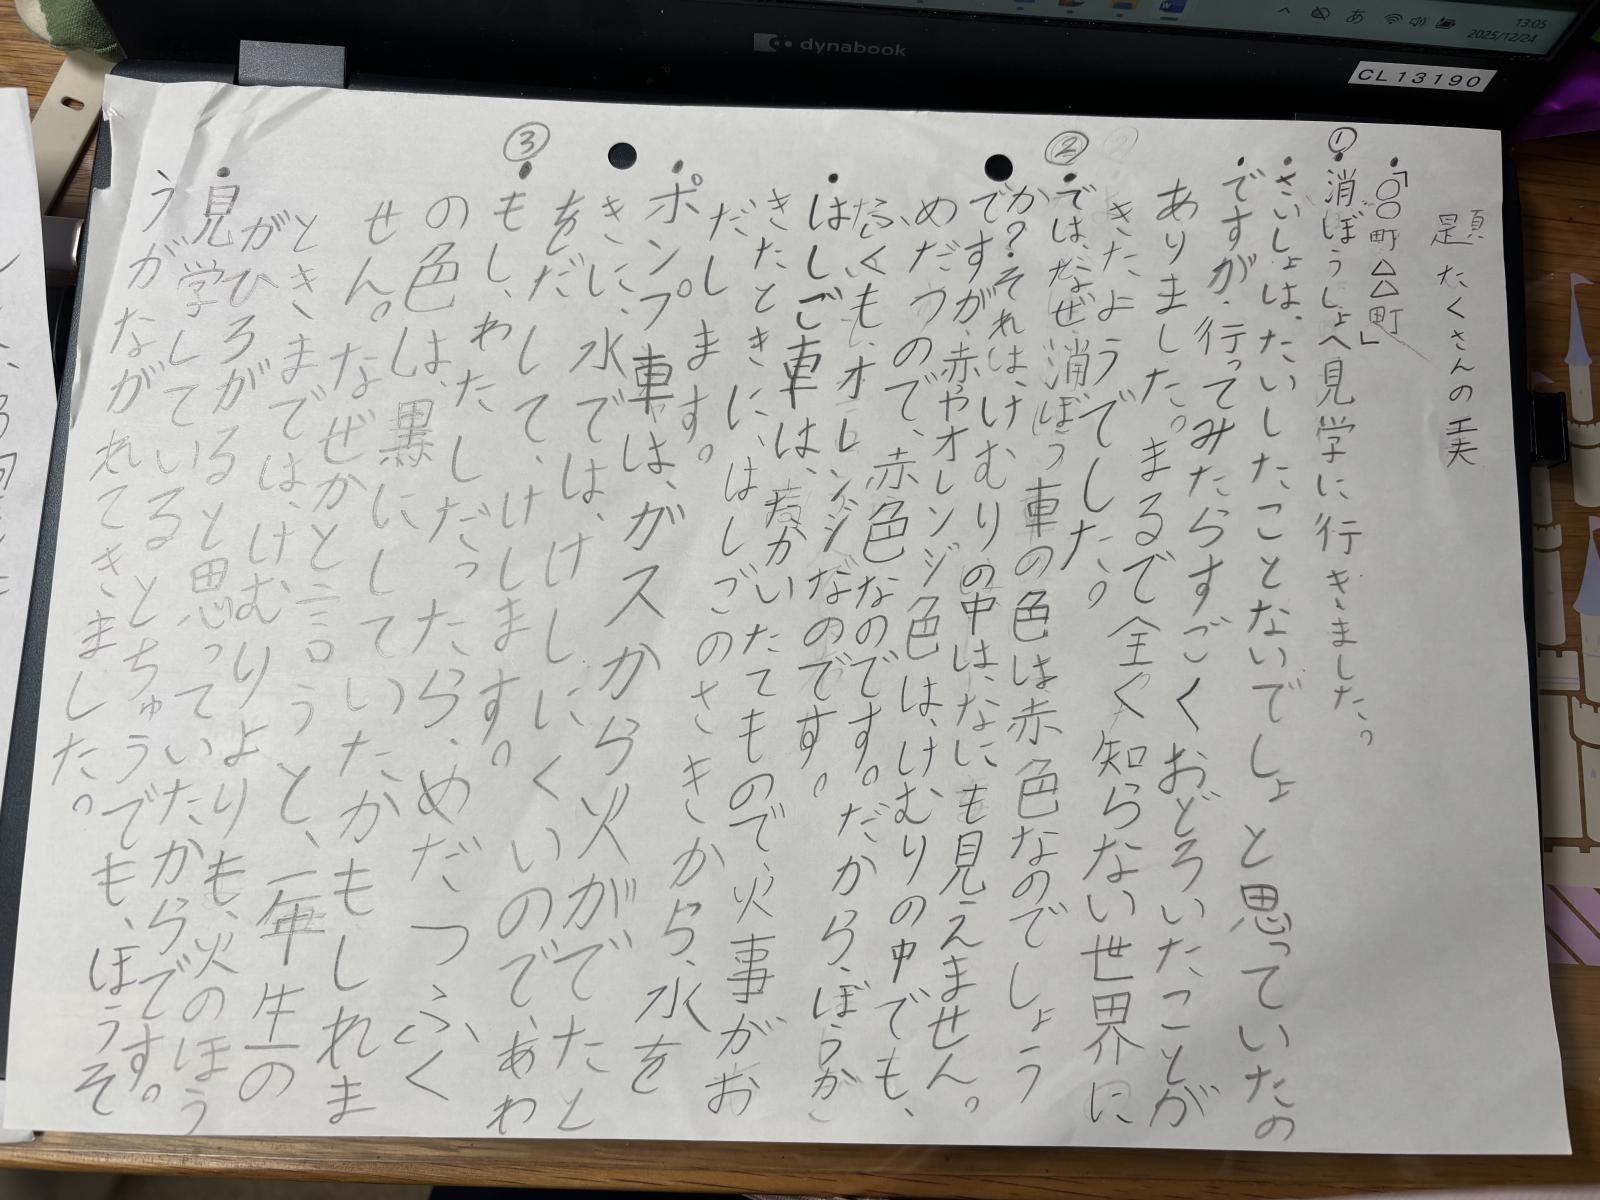 dynabook
13:05
2025/12/24
CL13190
題 たくさんの実
「〇〇町△△町」
① 消ぼうしょへ見学に行きました。
さいしょは、たいしたことないでしょと思っていたの
ですが、行ってみたらすごくおどろいたことが
ありました。まるで全く知らない世界に
きたようでした。
② では、なぜ消ぼう車の色は赤色なのでしょう
か?それは、けむりの中は、なにも見えません。
ですが、赤やオレンジ色は、けむりの中でも、
めだつので、赤色なのです。だから、ぼうか
ふくも、オレンジなのです。
はしご車は、高いたてもので、火事がお
きたときに、はしごのさきから、水を
だします。
ポンプ車は、ガスから火がでたと
きに、水では、けしにくいので、あわ
をだして、けします。
③ もし、わたしだったら、めだつふく
の色は、黒にしていたかもしれま
せん。なぜかと言うと、一年生の
ときまでは、けむりよりも、火のほう
がひろがると思っていたからです。
見学しているとちゅうでも、ほうそ
うがながれてきました。